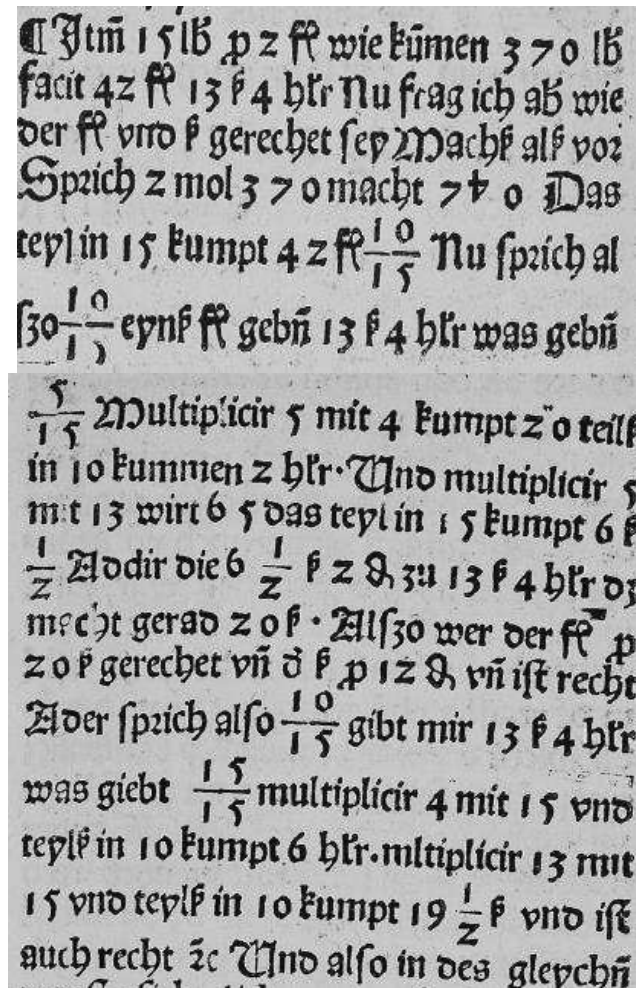 ¶ Jtm̃ 15 lb̃ ꝑ 2 fꝭ wie kũmen 3 7 0 lb̃
facit 42 fꝭ 13 ẞ 4 hl̃r Nu frag ich ab̃ wie
der fꝭ vnd ẞ gerechet sey Machẞ alẞ vor
Sprich 2 mol 3 7 0 macht 7 4 0 Das
teyl in 15 kumpt 4 2 fꝭ 10/15 Nu sprich al
szo 10/15 eynẞ fꝭ gebñ 13 ẞ 4 hl̃r was gebñ
5/15 Multiplicir 5 mit 4 kumpt 20 teilẞ
in 10 kummen 2 hl̃r · Und multiplicir 5
mit 13 wirt 6 5 das teyl in 15 kumpt 6 ẞ
1/2 Addir die 6 1/2 ẞ 2 ₰ zu 13 ẞ 4 hl̃r dz
mecht gerad 2 0 ẞ · Alszo wer der fꝭ ꝑ
20 ẞ gerechet vñ d̃ ẞ ꝑ 12 ₰ vñ ist recht
Ader sprich also 10/15 gibt mir 13 ẞ 4 hl̃r
was giebt 15/15 multiplicir 4 mit 15 vnd
teylẞ in 10 kumpt 6 hl̃r. mltiplicir 13 mit
15 vnd teylẞ in 10 kumpt 19 1/2 ẞ vnd ist
auch recht ⁊c̃ Und also in des gleychñ